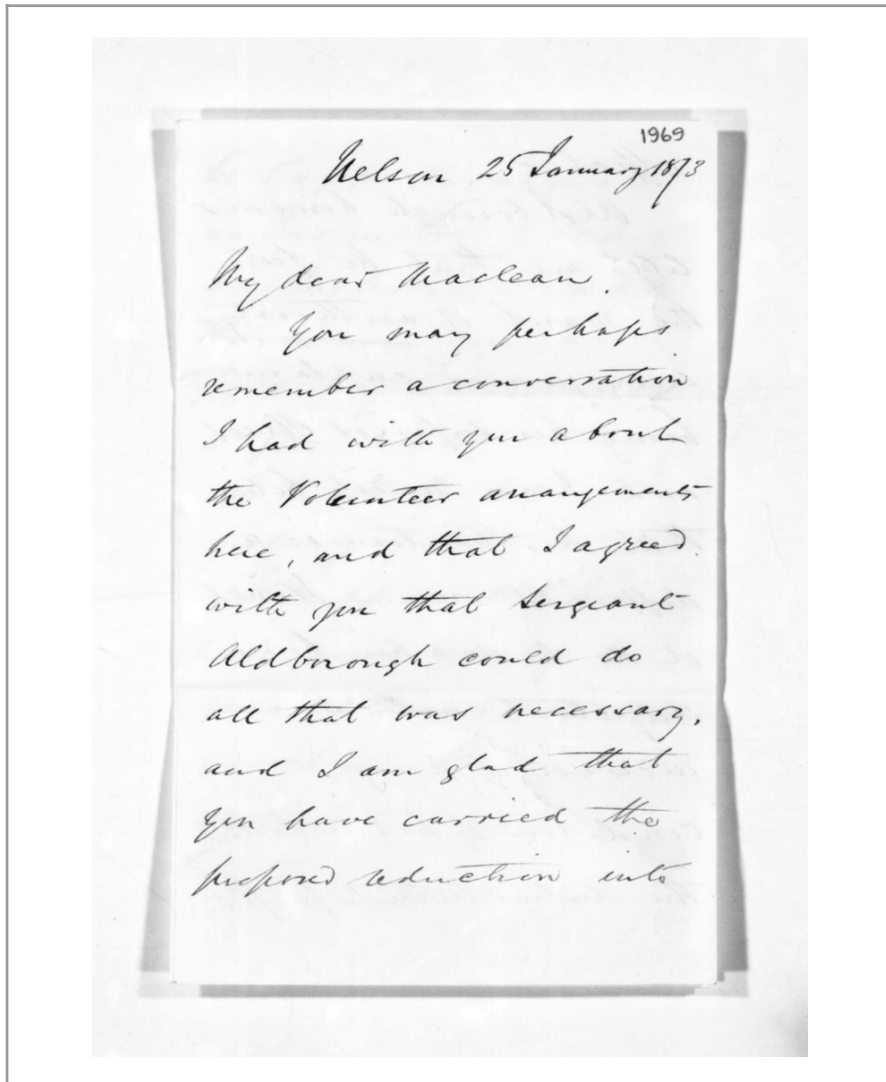 1969
Nelson 25 January 1873
My dear Maclean.
You may perhaps
remember a conversation
I had with you about
the Volunteer arrangements
here, and that I agreed
with you that Sergeant
Aldborough could do
all that was necessary,
and I am glad that
you have carried the
proposed reduction into